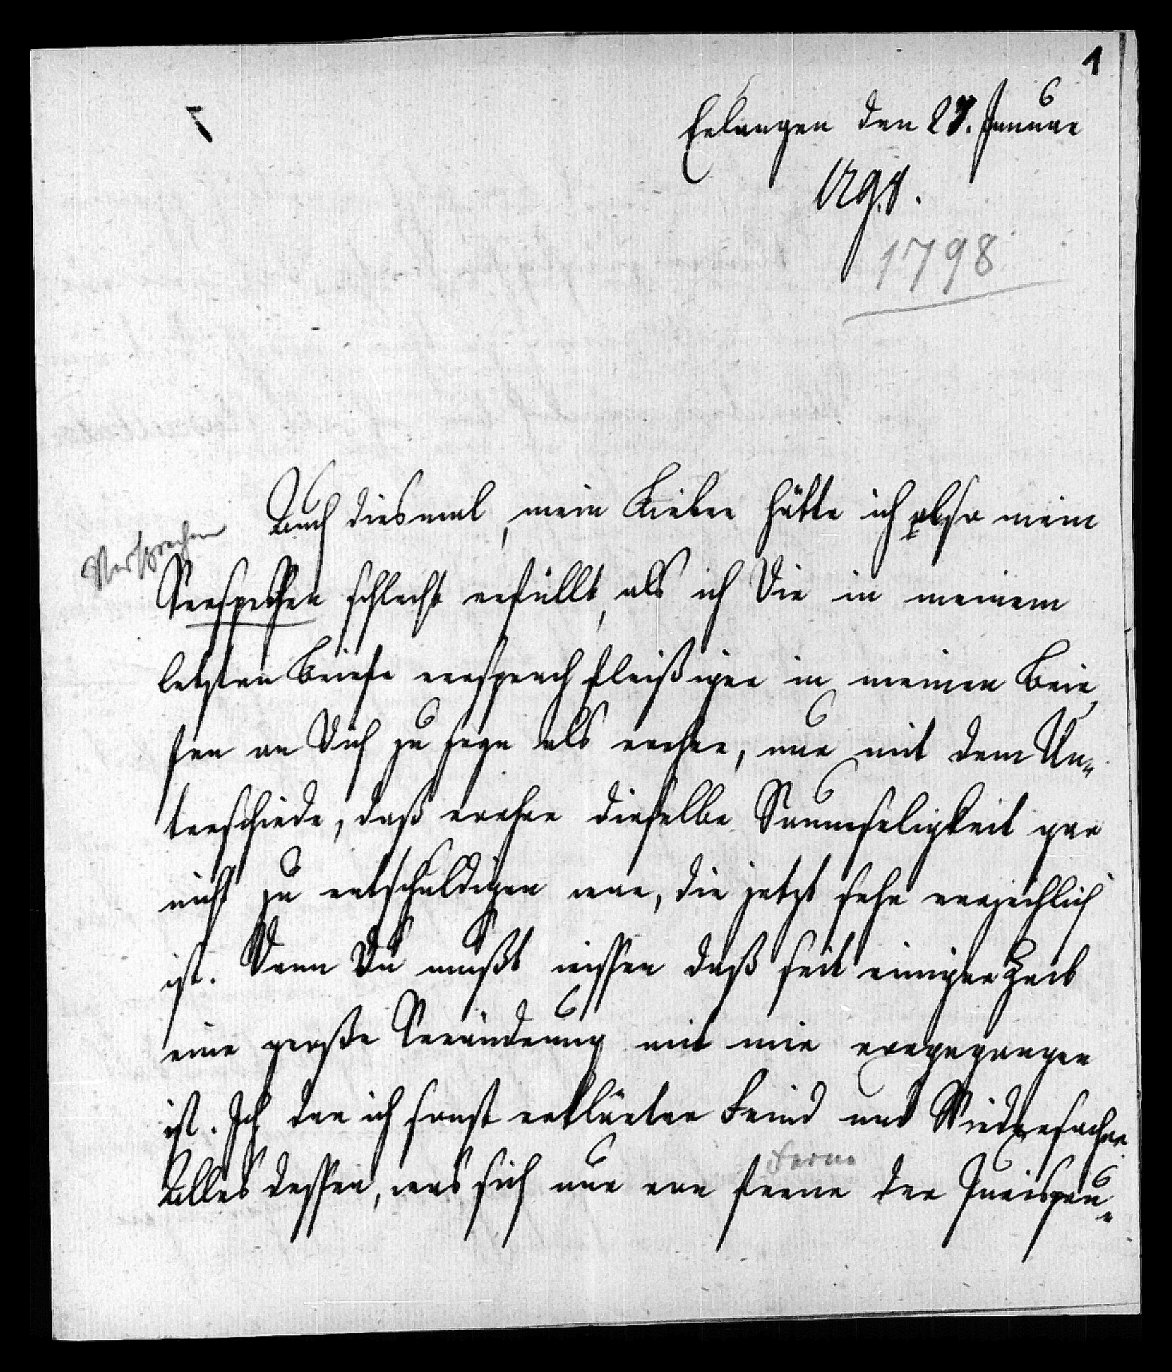 1
Erlangen den 27. Januar
98.
1798
Auch diesmal, mein Lieber hätte ich also mein
Versprechen
Versprechen schlecht erfüllt, als ich Dir in meinem
letzten Briefe versprach fleißiger in meinen Brie,
fen an Dich zu seyn als vorher, nur mit dem Un„
terschiede, daß vorher dieselbe Saumseligkeit gar
nicht zu entschuldigen war, die jetzt sehr verzeihlich
ist. Denn Du mußt wissen daß seit einiger Zeit
eine große Veränderung mit mir vorgegangen
ist. Ich der ich sonst erklärter Feind und Wiedersacher
ferne
Alles dessen, was sich nur von ferne der Jurispru„